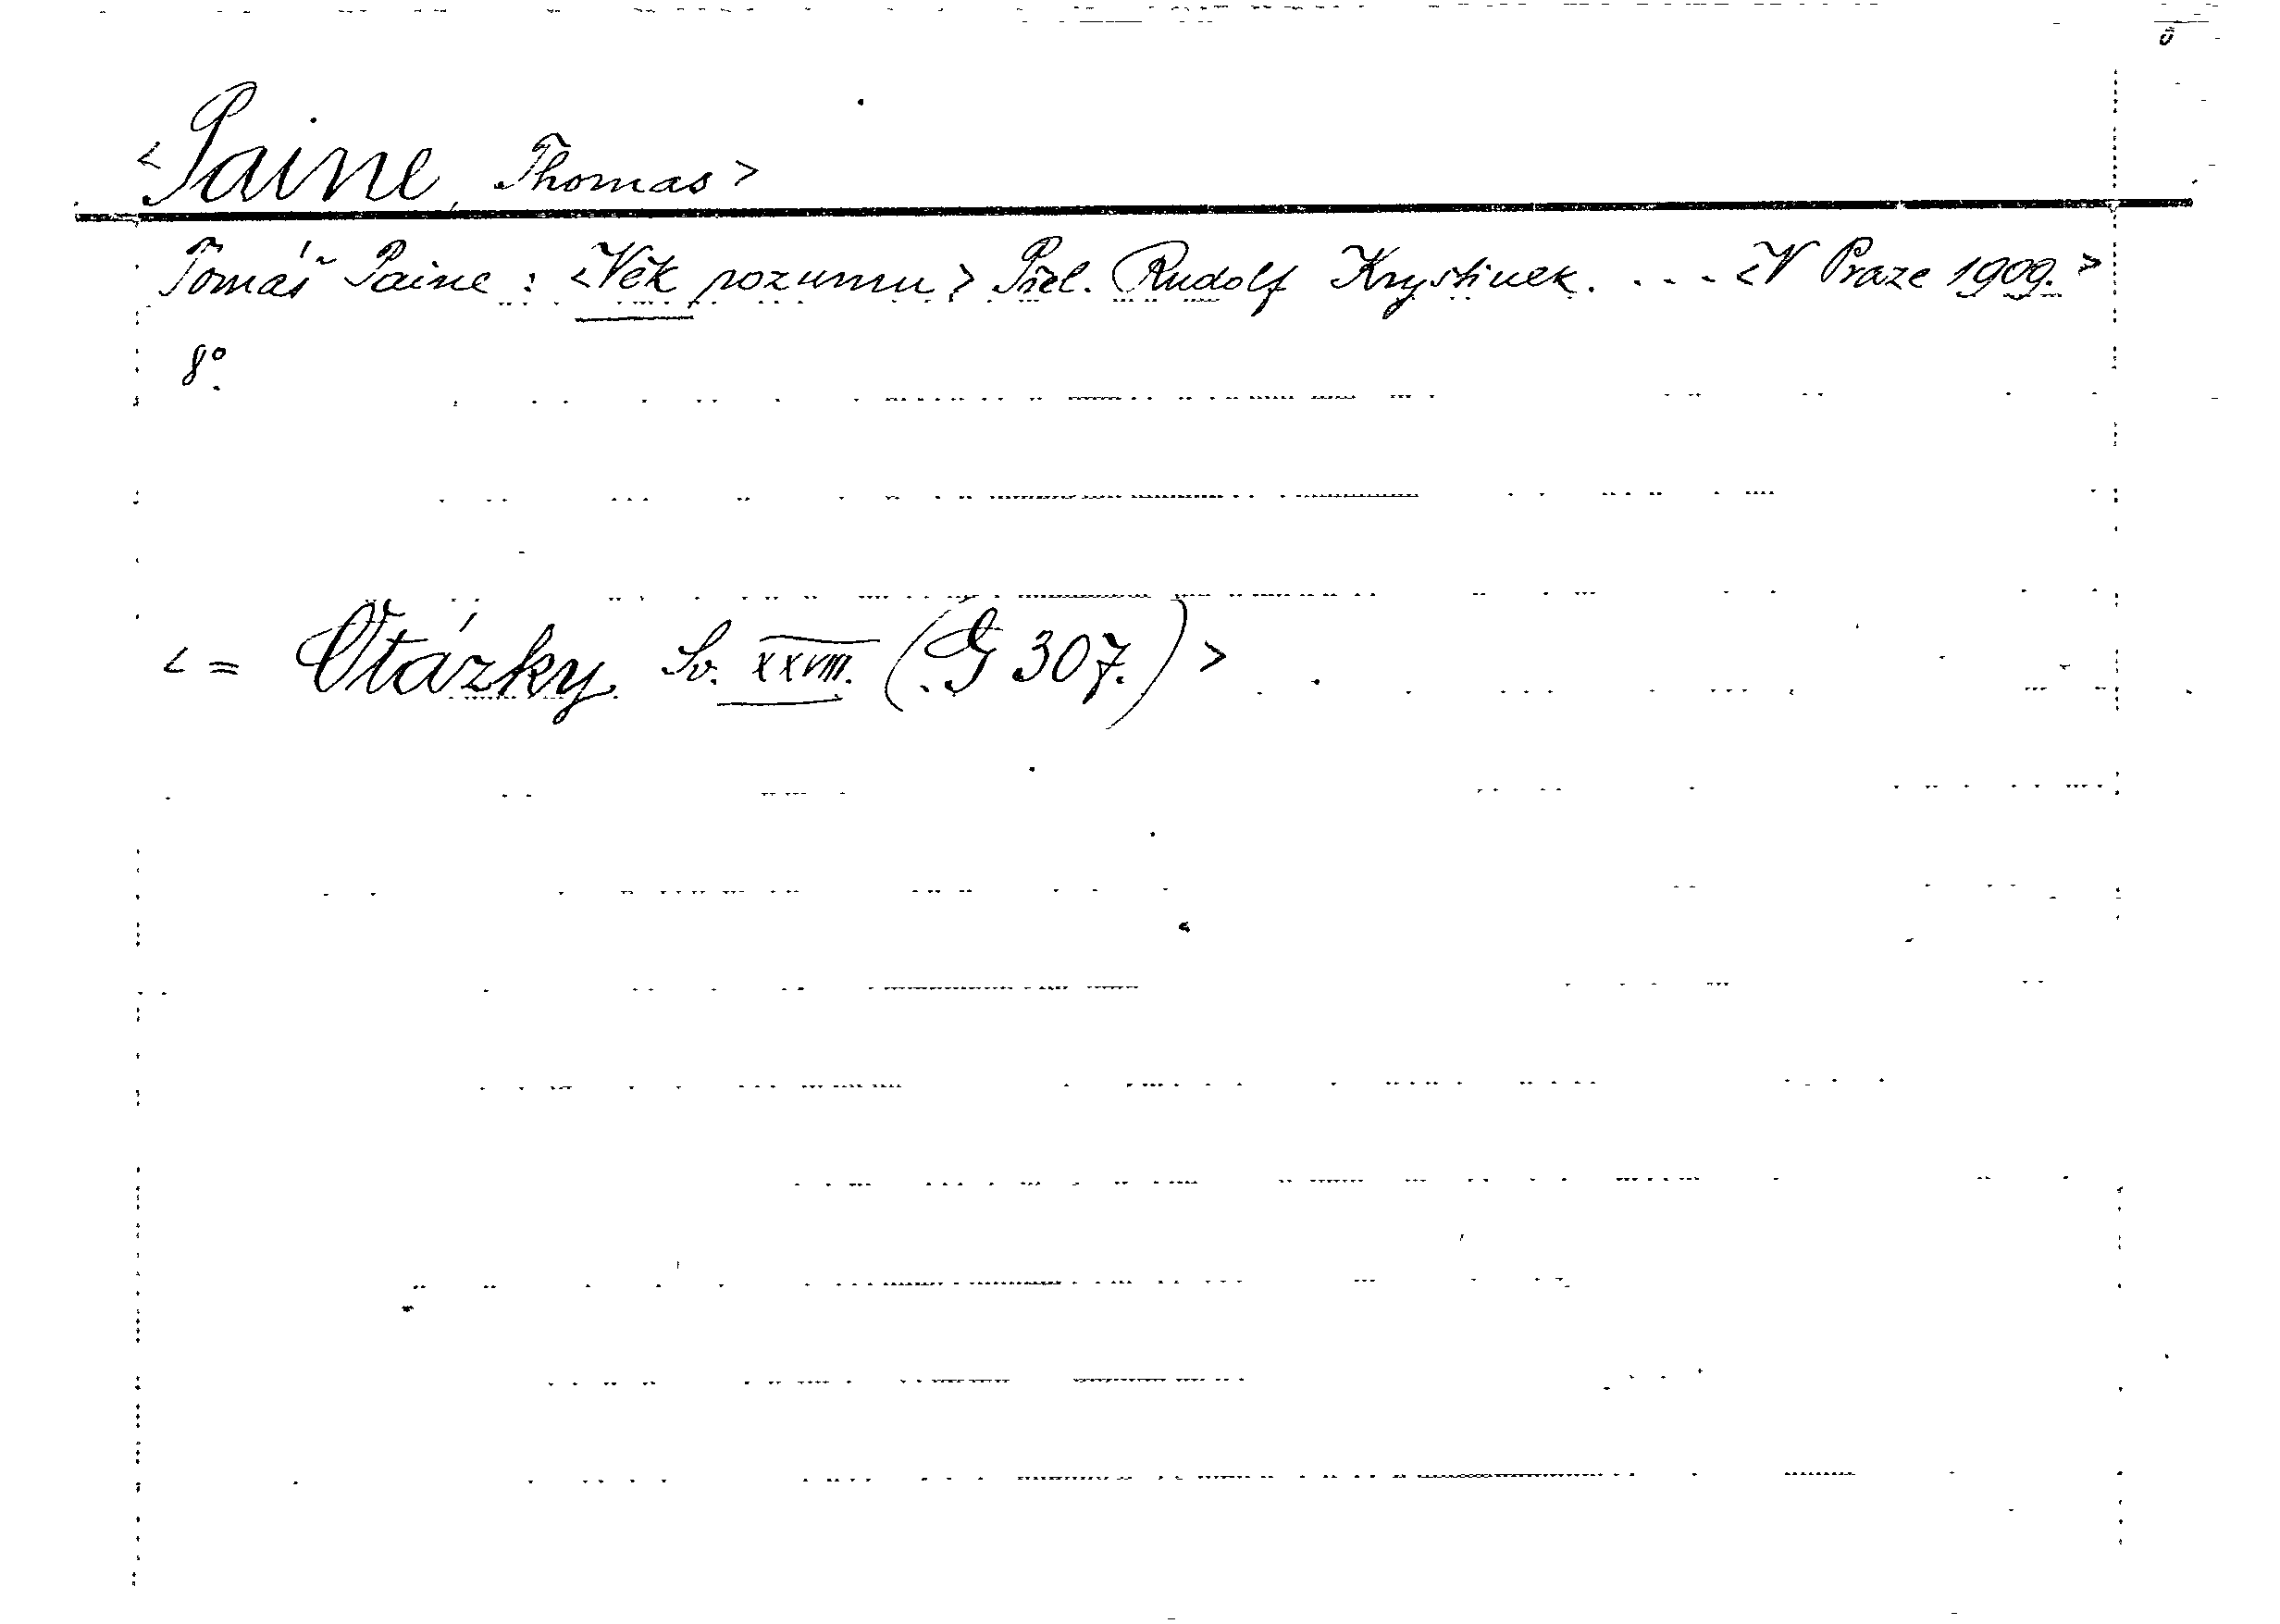 <Paine, Thomas>
Tomáš Paine: <Věk rozumu> Přel. Rudolf Krystinek. ... <V Praze 1909.>
8°.
<= Otázky Sv. XXVIII. (G 307.)>